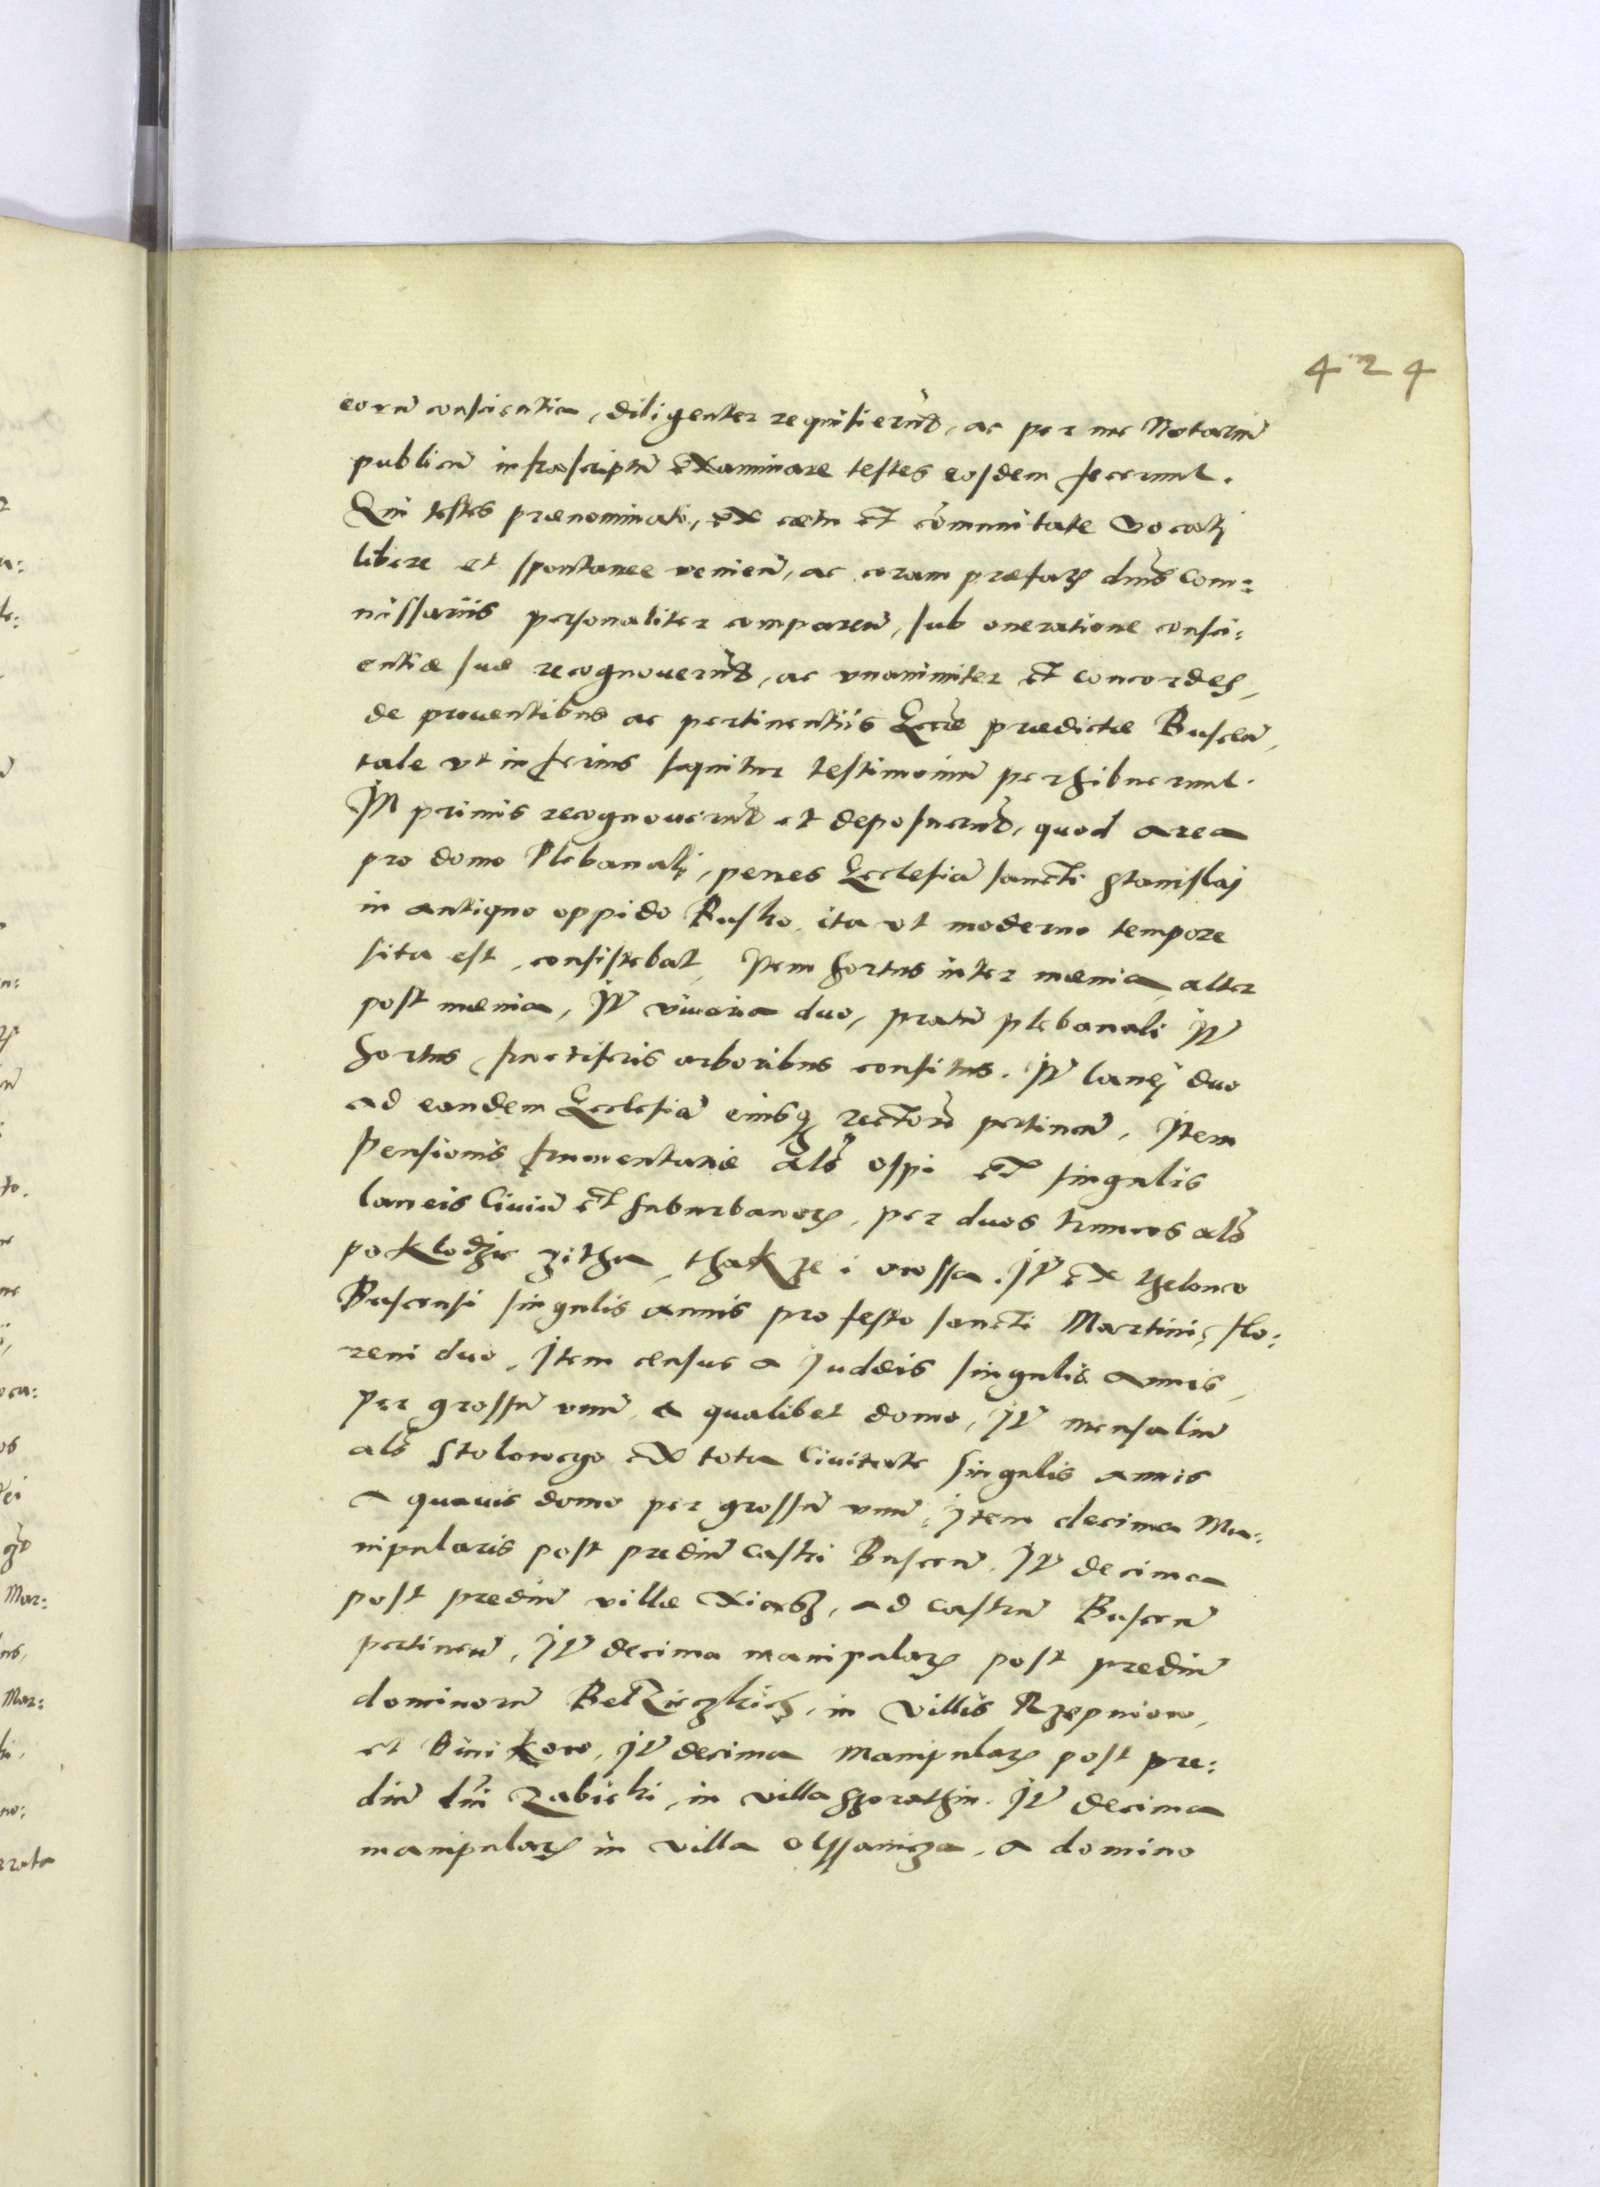 424
eorũ conscientia, diligenter requisierũt, ac per me Notariũ
publicũ infrascriptũ examinare testes eosdem fecerunt.
Qui testes prænominati, ex cætu et cõmunitate vocati
libere et spontanee venieñ, ac coram præfatis dñis Com:
missariis personaliter compareñ, sub oneratione consci:
entiæ suæ recognouerũt, ac vnanimiter et concordes,
de prouentibus ac pertinentiis Eccłiæ prædictæ Busceñ,
tale vt inferius sequitur testimoniũ perhibuerunt.
In primis recognouerũt et deposuerũt, quod area
pro domo Plebanali, penes Ecclesiã sancti Stanislaj
in antiquo oppido Busko, ita vt moderno tempore
sita est, consistebat, Item hortus inter mænia, alter
post mænia, It viuaria duo, pratũ plebanali It
hortus fructiferis arboribus consitus. It lanej duo
ad eandem Ecclesiã eiusq rectorẽ pertineñ, Item
Pensionis frumentariæ als ospi et singulis
laneis Ciuiũ et suburbanorũ, per duos truncos als
po klodzie zitha, thak ze i owssa. It ex theloneo
Buscensi singulis annis pro festo sancti Martini, flo:
reni duo, Item census a Judæis singulis annis,
per grossũ vnũ, a qualibet domo, It mensaliũ
als Stolowego ex tota Ciuitate singulis annis
a quauis domo per grossũ vnũ, Item decima Ma:
nipularis post prediũ castri Busceñ. It decima
post prediũ villæ ad castrũ Busceñ
pertineñ, It decima manipularis post prediũ
dominorũ in villis Rzepniow,
et It decima manipularis post præ:
diũ dñi Zabicki, in villa It decima
manipularis in villa Olssanicza, a domino